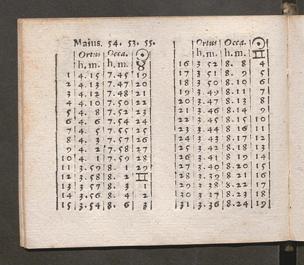 Maius. 54. 53. 55.
Ortus Occa. ☉
h. m. h. m. ♉
1 4.15 7.45 19
2 4.13 7.47 20
3 4.12 7.48 21
4 4.10 22
5 4. 8 7.52 23
6 4. 6 7.54 24
7 25
8 4. 26
9 4. 2 27
10 4. 1 7.59 28
11 3.58 8. 1 29
12 3.58 8. 2 ♊
13 3.57 8. 3 1
14 2
15 3.54 8. 6 3
Ortus Occa. ☉
h. m. h. m. ♊
16 3 52 8. 8 4
17 3.51 8. 9 5
18 6
19 3.48 8.12 7
20 3.47 8.13 8
21 3.46 8.14 9
22 3.45 8.15 10
23 3.44 8.16 11
24 12
25 13
26 3.41 8.19 14
27 3.40 8.20 15
28 3.39 8.21 16
29 3.38 8.22 17
30 18
31 3.36 8.24 19